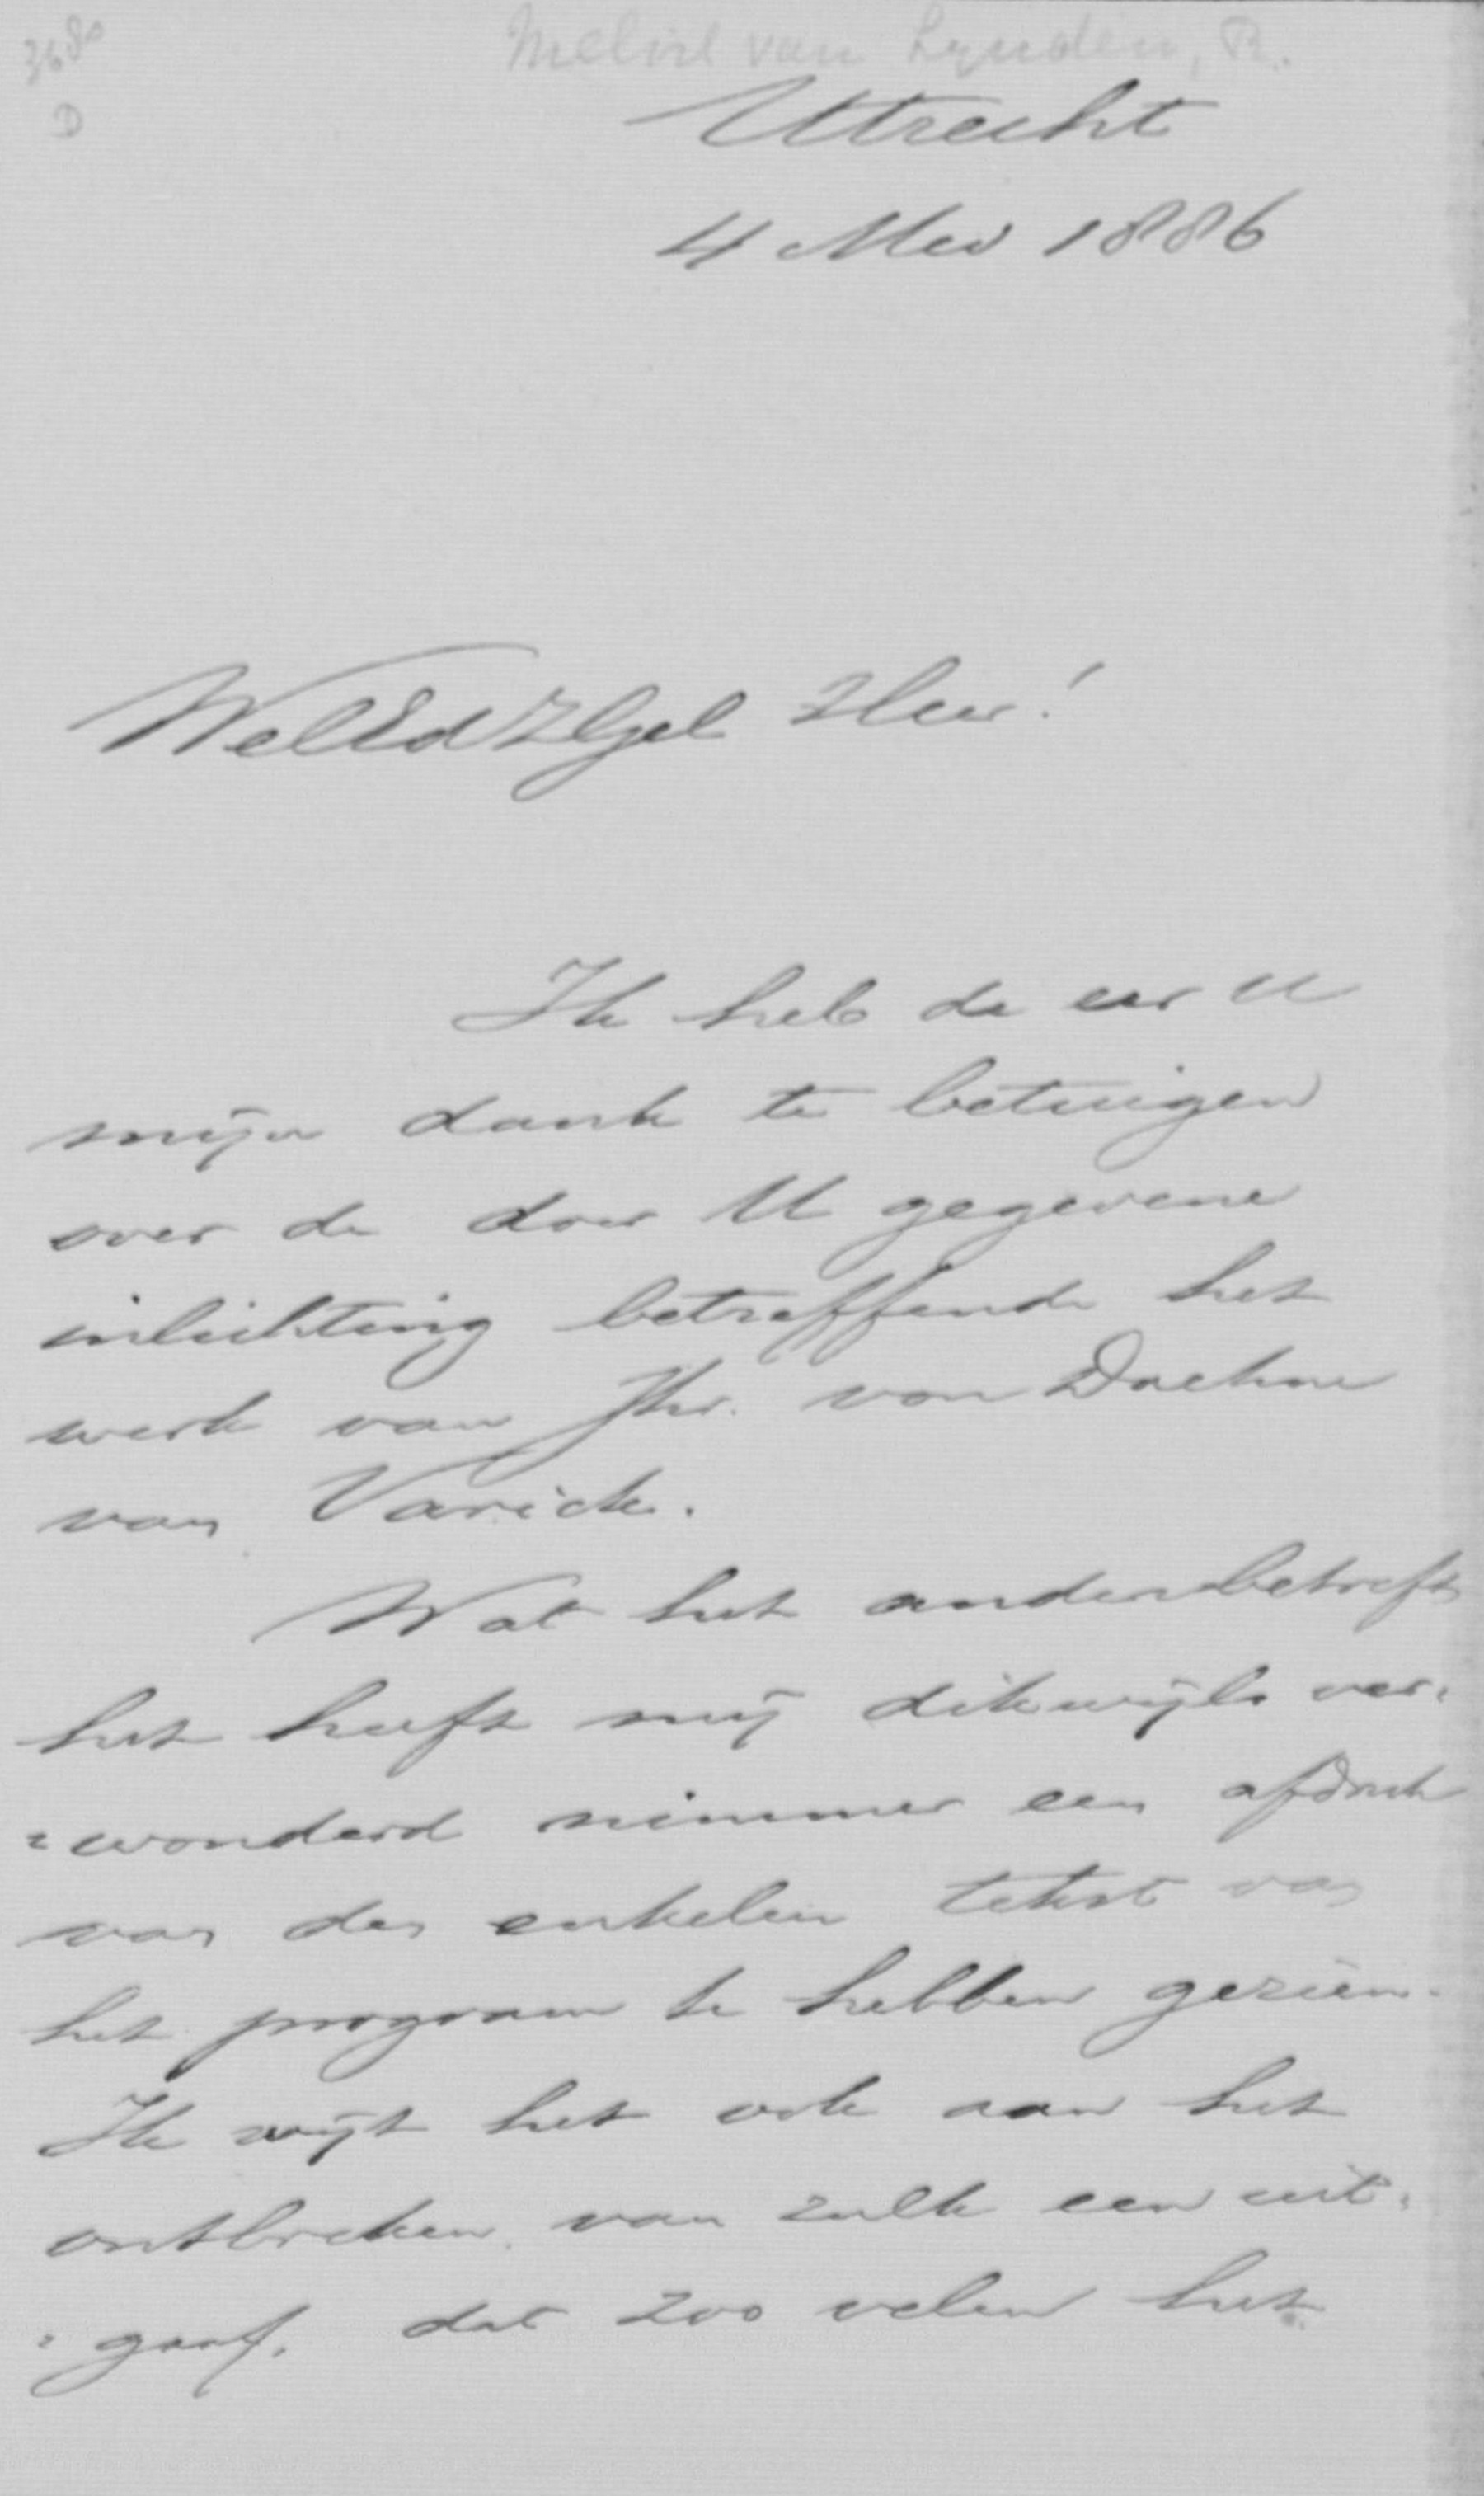 3680
D
Melvil van Lynden, R.
Utrecht
4 Mei 1886
WelEdZGel Heer!
Ik heb de eer U
mijn dank te betuigen
over de door U gegevene
inlichting betreffende het
werk van Jhr. von Daehne
van Varick.
Wat het andere betreft
het heeft mij dikwijls ver-
=wonderd nimmer een afdruk
van den enkelen tekst van
het program te hebben gezien.
Ik wijt het ook aan het
ontbreken van zulk een uit-
=gaaf, dat zoo velen het